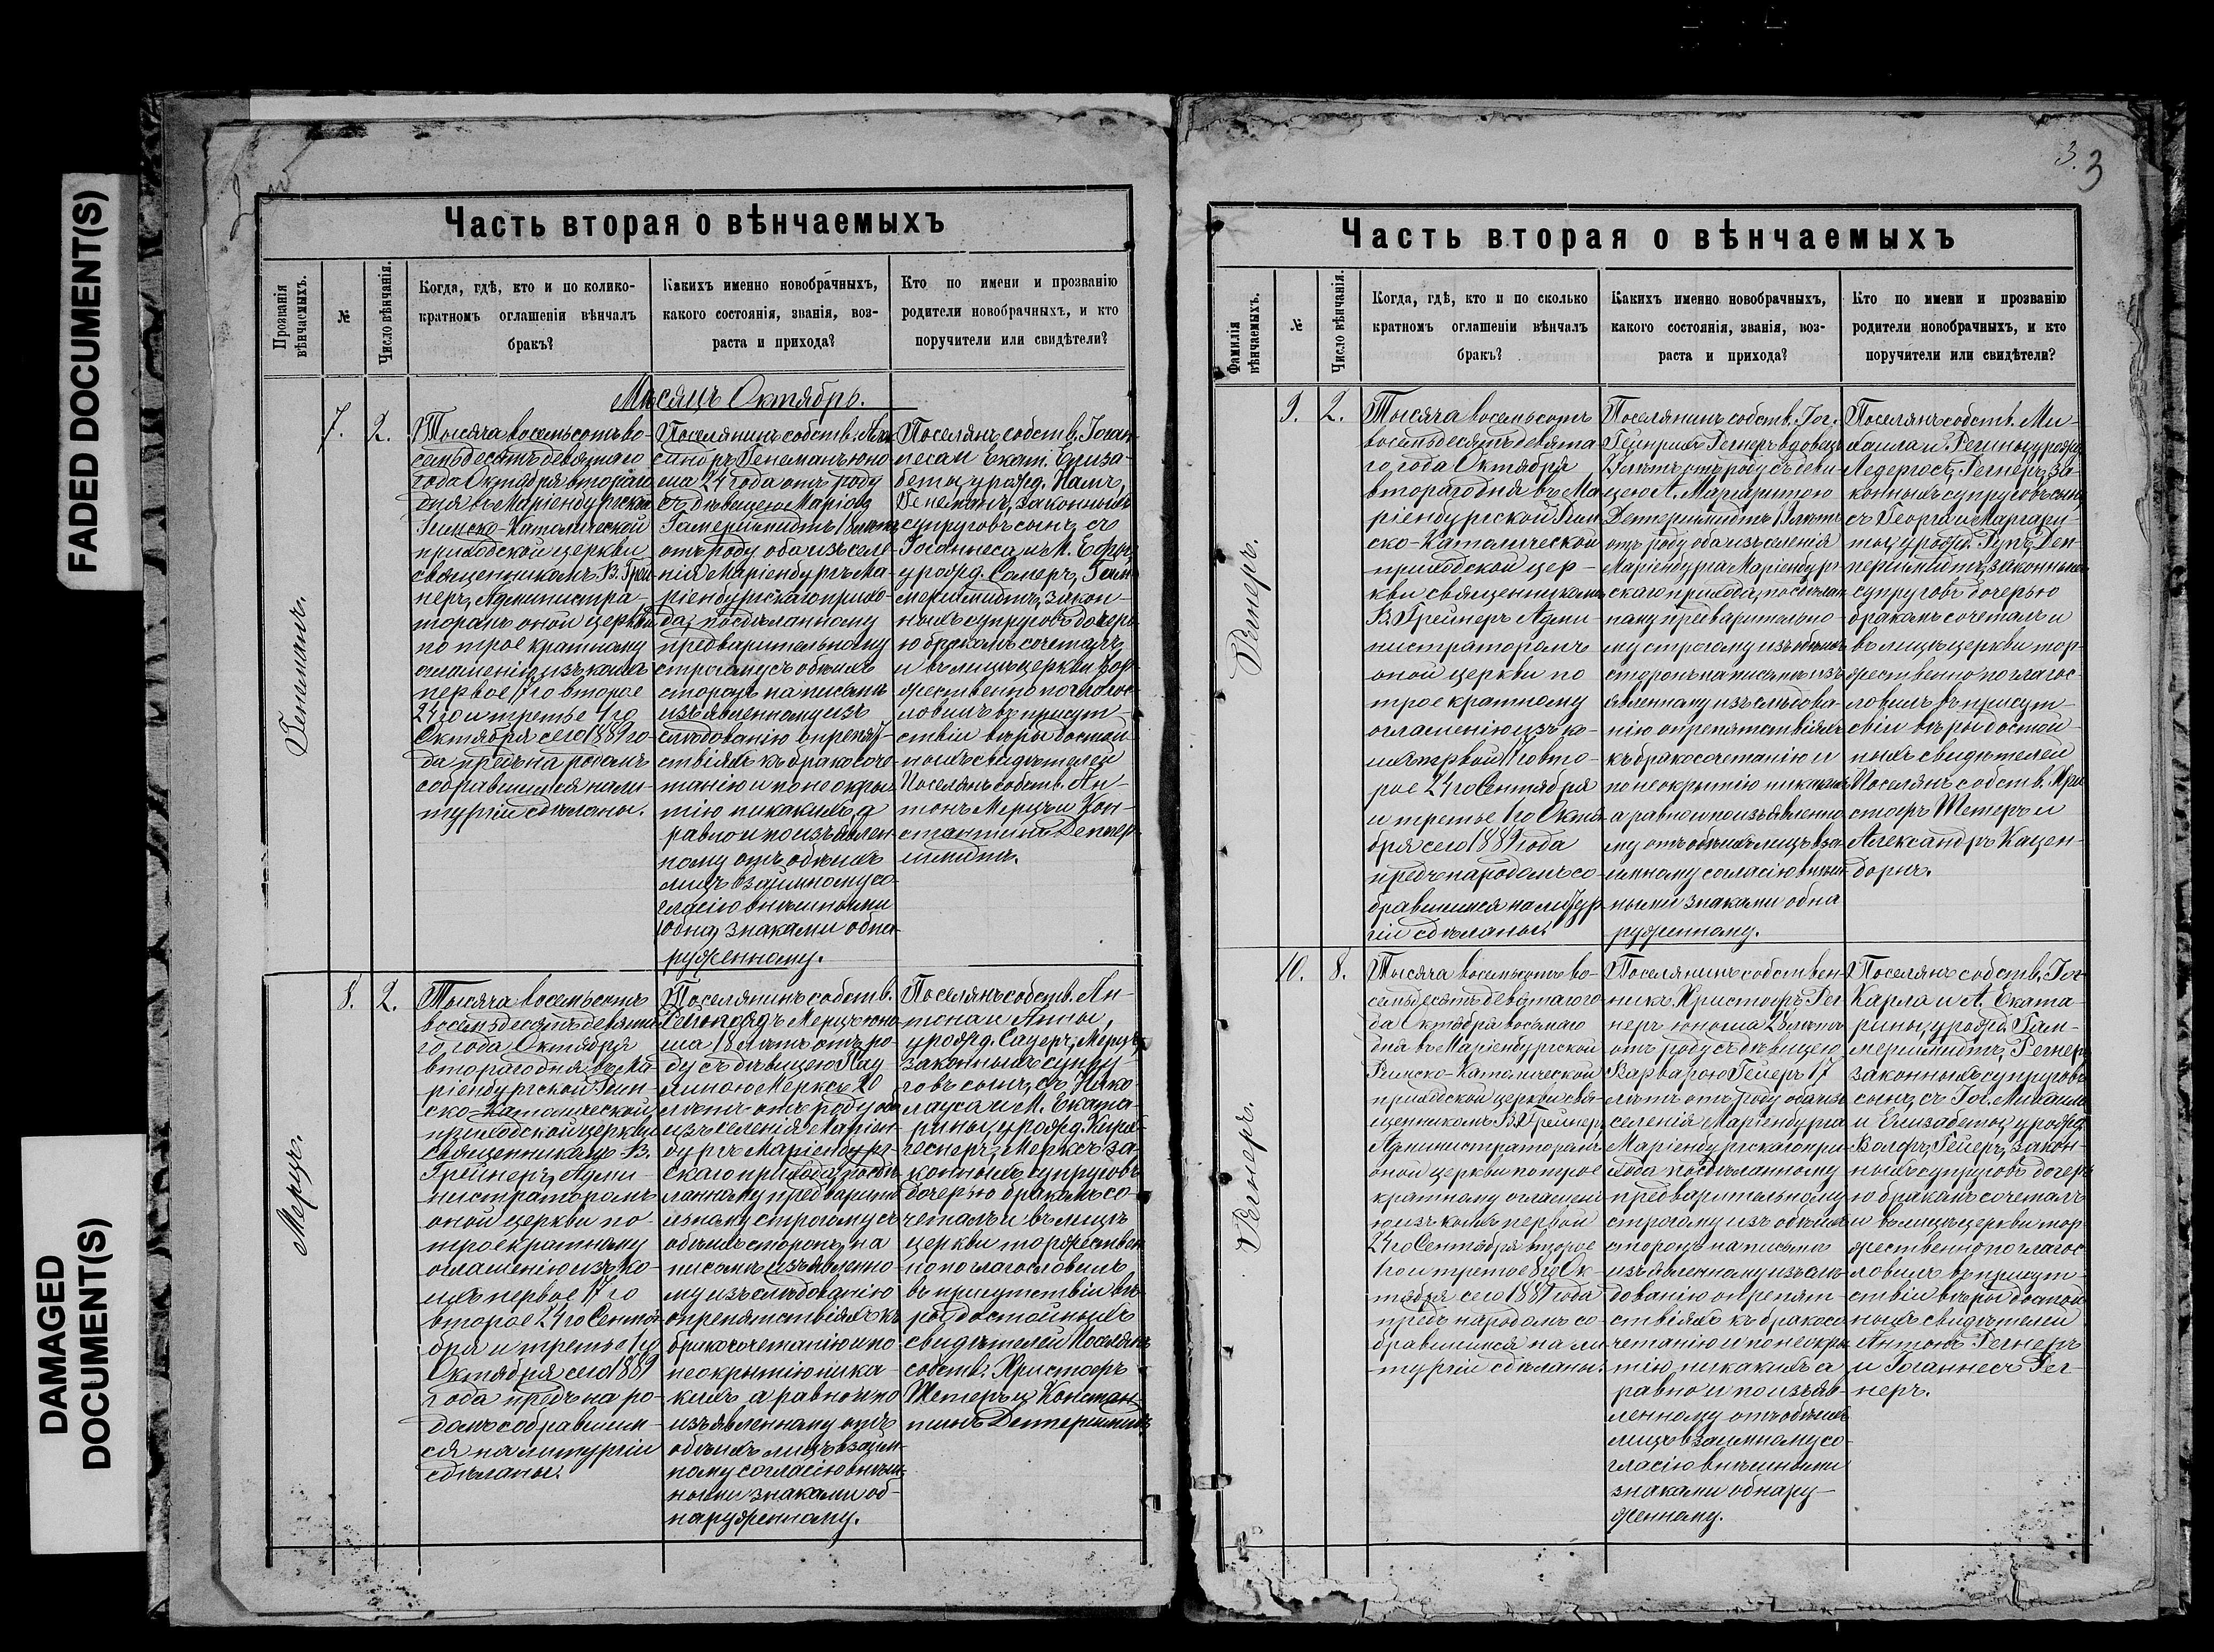 FADED DOCUMENT(S)
DAMAGED
DOCUMENT(S)
Часть вторая о вѣнчаемыхъ
Прозванія
вѣнчаемыхъ.
№
Число вѣнчанія.
Когда, гдѣ, кто и по колико-
кратномъ оглашеніи вѣнчалъ
бракъ?
Какихъ именно новобрачныхъ,
какого состоянія, званія, воз-
раста и прихода?
Кто по имени и прозванію
родители новобрачныхъ, и кто
поручители или свидѣтели?
Мѣсяцъ Октябрь.
Генеманъ.
7.
2.
Тысяча восемьсотъ во-
семьдесятъ девятаго
года Октября втораго
дня въ Маріенбургской
Римско-Католической
приходской церкви
священникомъ В. Грей-
неръ, Администра-
торомъ оной церкви
по трое кратному
оглашенію, изъ коихъ
первое 17го второе
24го и третье 1го
Октября сего 1889 го-
да предъ народомъ
собравшимся на ли-
тургіи сдѣланы.
Поселянинъ собств. Алек
Генеманъ юно
ша 24 года отъ роду
съ дѣвицею Маріею
Гамершмидтъ 18 лѣтъ
отъ роду оба изъ селе-
нія Маріенбургъ Ма-
ріенбургскаго прихо-
да, по сдѣланному
предварительному
строгому съ обѣихъ
сторонъ на письмѣ
изъявленному изъ
слѣдованію о препят-
ствіяхъ къ бракосоче
танію и по неокры-
тію никакихъ, а
равно и по изъявлен-
ному отъ обѣихъ
лицъ взаимному со-
гласію внѣшними
знаками обна-
руженному.
Поселянъ собств. Іоган-
неса и Екат. Елиза-
беты, урожд. Гамъ,
Генеманъ, законныхъ
супруговъ сынъ, съ
Іоганнеса и М.
урожд. Самеръ, Гам-
мершмидтъ, закон-
ныхъ супруговъ дочерь-
ю бракомъ сочеталъ
и въ лицѣ церкви тор-
жественно поблагос-
ловилъ въ присут-
ствіи вѣры достой-
ныхъ свидѣтелей
Поселянъ собств. Ан-
тонъ Мерцъ и Кон-
стантинъ Деппер-
шмидтъ.
Мерцъ.
8.
2.
Тысяча восемьсотъ
восемьдесятъ девята-
го года Октября
втораго дня въ Ма-
ріенбургской Рим-
ско-Католической
приходской церкви
священникомъ В.
Грейнеръ, Адми-
нистраторомъ
оной церкви по-
трое кратному
оглашенію изъ ко-
ихъ первое 17го
второе 24го Сентя-
бря и третье 1го
Октября сего 1889
года предъ наро-
домъ собравшим-
ся на литургіи
сдѣланы.
Поселянинъ собств.
Мерцъ юно-
ша 18 лѣтъ отъ ро-
ду съ дѣвицею Пау-
линою Мерксъ 20
лѣтъ отъ роду оба
изъ селенія Маріен-
бургъ Маріенбург-
скаго прихода, по сдѣ-
ланному предварите
льному строгому съ
обѣихъ сторонъ, на
письмѣ изъявленно-
му изъ слѣдованію
о препятствіяхъ къ
бракосочетанію и по
неокрытію ника-
кихъ а равно и по
изъявленному отъ
обѣихъ лицъ взаим-
ному согласію внѣш-
ними знаками об-
наруженному.
Поселянъ собств. Ан-
тона и Анны,
урожд. Сауеръ, Мерцъ,
законныхъ супру-
говъ сынъ, съ Нико-
лауса и М. Екате-
рины, урожд. Кирх-
геснеръ, Мерксъ за-
конныхъ супруговъ
дочерью бракомъ со-
четалъ и въ лицѣ
церкви торжествен-
но поблагословилъ
въ присутствіи вѣ-
ры достойныхъ
свидѣтелей Поселянъ
собств. Кристофъ
Шетеръ и Констан-
тинъ Деппершмидтъ
3.
3
Часть вторая о вѣнчаемыхъ
Фамилія
вѣнчаемыхъ.
№
Число вѣнчанія.
Когда, гдѣ, кто и по сколько
кратномъ оглашеніи вѣнчалъ
бракъ?
Какихъ именно новобрачныхъ,
какого состоянія, званія, воз-
раста и прихода?
Кто по имени и прозванію
родители новобрачныхъ, и кто
поручители или свидѣтели?
Регнеръ.
9.
2.
Тысяча восемьсотъ
восемьдесятъ девята-
го года Октября
втораго дня въ Ма-
ріенбургской Рим-
ско-Католической
приходской цер-
кви священникомъ
В. Грейнеръ Адми-
нистраторомъ
оной церкви по
трое кратному
оглашенію изъ ко-
ихъ первой 17го вто-
рое 24го Сентября
и третье 1го Октя-
бря сего 1889 года
предъ народомъ со-
бравшимся на литур-
гіи сдѣланы.
Поселянинъ собств. Іог.
Гейнрихъ Регнеръ вдовецъ
лѣтъ отъ роду съ дѣви-
цею А. Маргаритою
Деппершмидтъ лѣтъ
отъ роду оба изъ селенія
Маріенбурга Маріенбург-
скаго прихода, по сдѣлан-
ному предварительно-
му строгому изъ обѣихъ
сторонъ на письмѣ изъ-
явленному изъ слѣдова-
нію о препятствіяхъ
къ бракосочетанію и
по неокрытію никакихъ
а равно и по изъявленно
му отъ обѣихъ лицъ вза-
имному согласію внѣш-
ными знаками обна
руженному.
Поселянъ собств. Ми-
хаила и Регины, урожд.
Ледергосъ, Регнеръ, за-
конныхъ супруговъ сынъ,
съ Георга и Маргари-
ты, урожд. Руппъ, Деп-
першмидтъ, законныхъ
супруговъ дочерью
бракомъ сочеталъ и
въ лицѣ церкви тор-
жественно поблагос-
ловилъ въ присут-
свіи вѣры достой-
ныхъ свидѣтелей
Поселянъ собств. Кри-
стофъ Шетеръ и
Александръ Кацен-
дорнъ.
Регнеръ.
10.
8.
Тысяча восемьсотъ во-
семьдесятъ девятаго го-
да Октября восьмаго
дня въ Маріенбургской
Римско-Католической
приходской церкви свя-
щенникомъ В. Грейнеръ,
Администраторомъ
оной церкви по трое
кратному оглашені-
ю изъ коихъ первой
24го Сентября второе
1го и третье 8го Ок-
тября сего 1889 года
предъ народомъ со-
бравшимся на ли-
тургіи сдѣланы.
Поселянинъ собствен-
никъ Христофъ Рег-
неръ юноша 23 лѣтъ
отъ роду съ дѣвицею
Варварою Гейеръ 17
лѣтъ отъ роду оба изъ
селенія Маріенбурга
Маріенбургскаго при-
хода по сдѣланному
предварительному
строгому изъ обѣихъ
сторонъ на письмѣ
изъявленному изъ слѣ-
дованію о препят-
ствіяхъ къ бракосо-
четанію и по неокры-
тію никакихъ а
равно и по изъяв-
ленному отъ обѣихъ
лицъ взаимному со-
гласію внѣшними
знаками обнару-
женному.
Поселянъ собств. Іог.
Карла и А. Екате-
рины, урожд. Гам-
мершмидтъ, Регнеръ
законныхъ супруговъ
сынъ, съ Іог. Михаила
и Елизабеты, урожд.
Волфъ, Гейеръ, закон-
ныхъ супруговъ дочерь-
ю бракомъ сочеталъ
и въ лицѣ церкви тор-
жественно поблагос-
ловилъ въ присут-
ствіи вѣры достой-
ныхъ свидѣтелей
Антонъ Регнеръ
и Іоганнесъ Рег-
неръ.